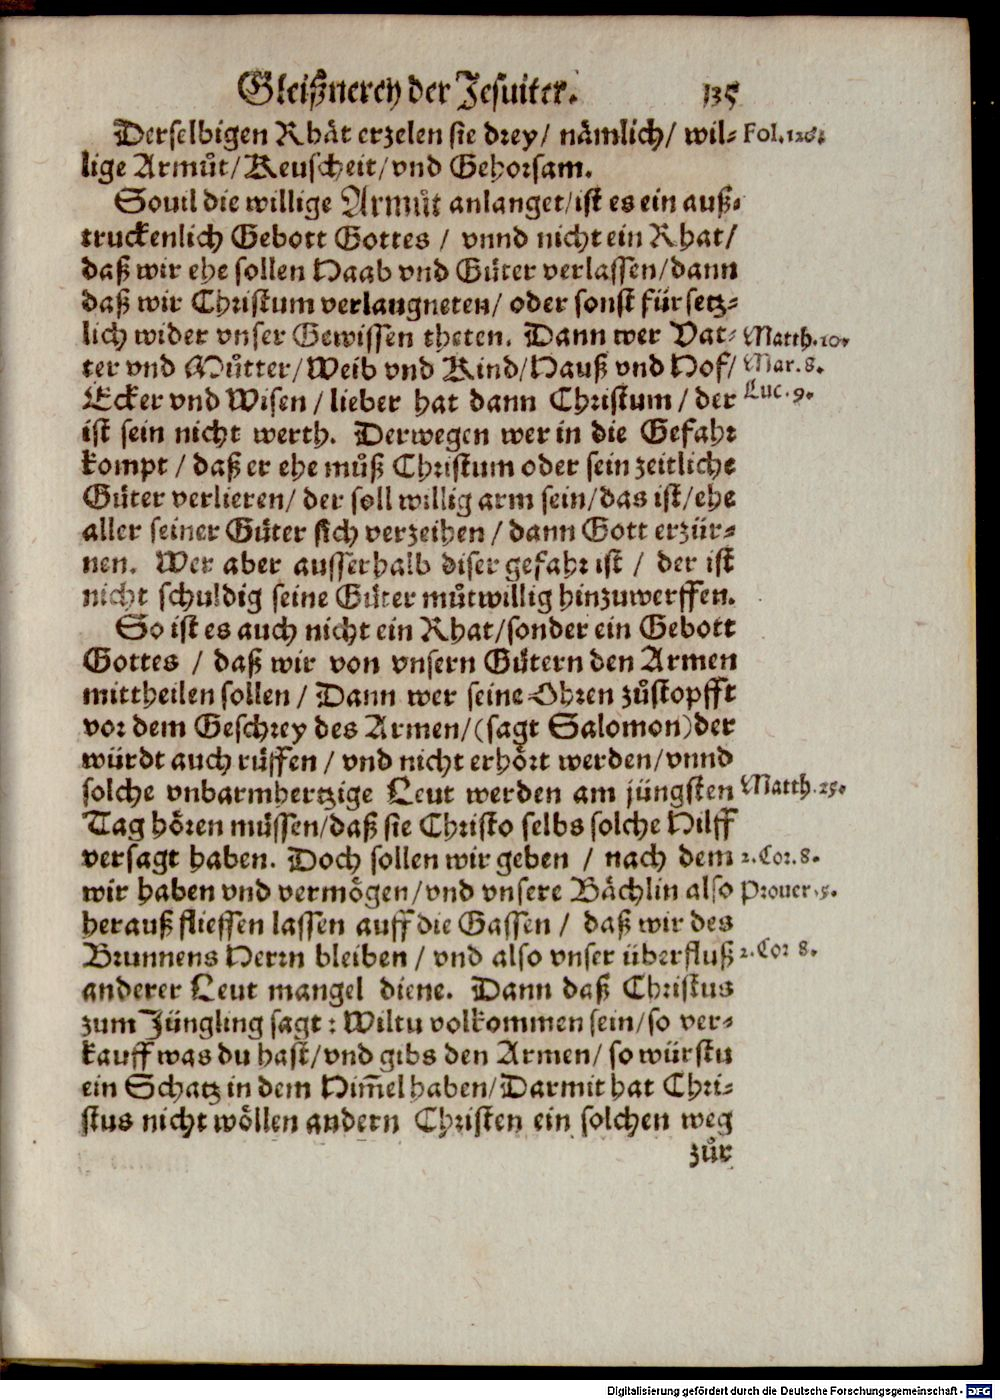 Gleißnerey der Jesuiter. 135
Derselbigen Rhät erzelen sie drey/ nämlich/ wil= Fol. 126.
lige Armůt/ Keuscheit/ vnd Gehorsam.
Souil die willige Armůt anlanget/ ist es ein auß=
truckenlich Gebott Gottes / vnnd nicht ein Rhat/
daß wir ehe sollen Haab vnd Güter verlassen/ dann
daß wir Christum verlaugneten/ oder sonst fürsetz=
lich wider vnser Gewissen theten. Dann wer Vat= Matth. 10.
ter vnd Můtter/ Weib vnd Kind/ Hauß vnd Hof/ Mar. 8.
Ecker vnd Wisen / lieber hat dann Christum / der Luc. 9.
ist sein nicht werth. Derwegen wer in die Gefahr
kompt / daß er ehe můß Christum oder sein zeitliche
Güter verlieren/ der soll willig arm sein/ das ist/ ehe
aller seiner Güter sich verzeihen / dann Gott erzür=
nen. Wer aber ausserhalb diser gefahr ist / der ist
nicht schuldig seine Güter můtwillig hinzuwerffen.
So ist es auch nicht ein Rhat/ sonder ein Gebott
Gottes / daß wir von vnsern Gütern den Armen
mittheilen sollen / Dann wer seine Ohren zůstopfft
vor dem Geschrey des Armen/ (sagt Salomon) der
würdt auch rüffen / vnd nicht erhört werden/ vnnd
solche vnbarmhertzige Leut werden am jüngsten Matth. 25.
Tag hören müssen/ daß sie Christo selbs solche Hilff
versagt haben. Doch sollen wir geben / nach dem 2. Cor. 8.
wir haben vnd vermögen/ vnd vnsere Bächlin also Prouer. 5.
herauß fliessen lassen auff die Gassen / daß wir des
Brunnens Herrn bleiben / vnd also vnser überfluß 2. Cor 8.
anderer Leut mangel diene. Dann daß Christus
zum Jüngling sagt: Wiltu volkommen sein/ so ver=
kauff was du hast/ vnd gibs den Armen/ so würstu
ein Schatz in dem Him̃el haben/ Darmit hat Chri=
stus nicht wöllen andern Christen ein solchen weg
zůr
Digitalisierung gefördert durch die Deutsche Forschungsgemeinschaft - DFG